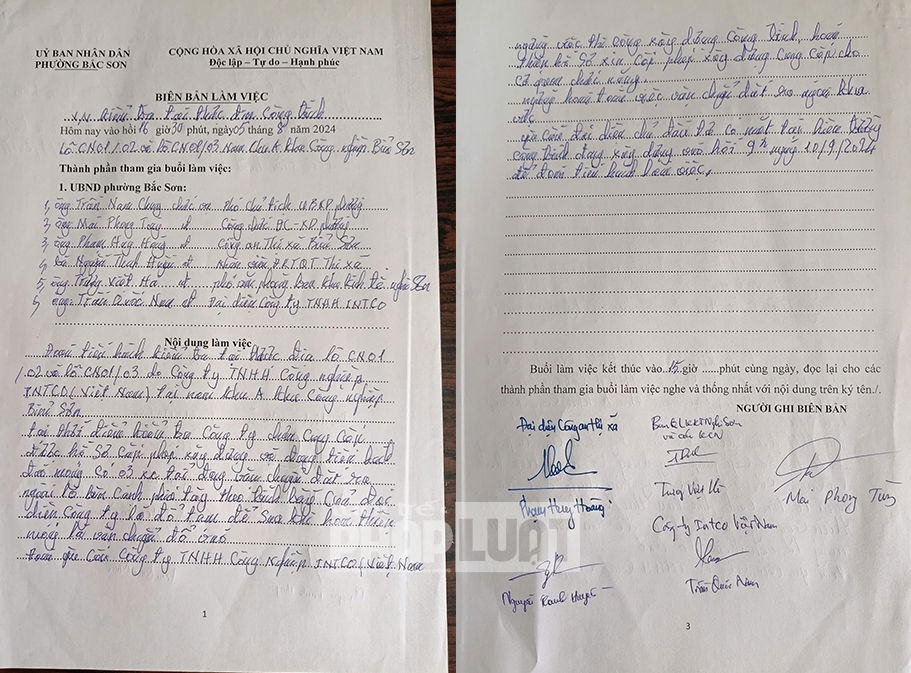 UỶ BAN NHÂN DÂN
PHƯỜNG BẮC SƠN
CỘNG HÒA XÃ HỘI CHỦ NGHĨA VIỆT NAM
Độc lập – Tự do – Hạnh phúc
BIÊN BẢN LÀM VIỆC
V.v. kiểm tra tại thực địa công trình
Hôm nay vào hồi 16 giờ 30 phút, ngày 05 tháng 8 năm 2024
lô CN01/02 và lô CN01/03 Nam khu A khu Công nghiệp Bỉm Sơn
Thành phần tham gia buổi làm việc:
1. UBND phường Bắc Sơn:
1, ông Trần Nam Chung chức vụ phó chủ tịch UBND phường
2, ông Mai Phong Tùng nt Công chức ĐC-XD phường
3, ông Phạm Huy Hoàng nt Công an Thị xã Bỉm Sơn
4, bà Nguyễn Thanh Huyền nt Nhân viên Thị xã
5, ông Trương Viết Hà nt phó phòng ban khu kinh tế nghi Sơn
6, ông Trần Quốc Nam nt Đại diện Công ty TNHH INTCO
Nội dung làm việc
Đoàn tiến hành kiểm tra tại thực địa lô CN01
/02 và lô CN01/03 do Công ty TNHH Công nghiệp
INTCO (Việt Nam) tại nam khu A khu Công nghiệp
Bỉm Sơn
tại thời điểm kiểm tra Công ty chưa cung cấp
được hồ sơ cấp phép xây dựng và đang tiến hành
đào móng có 03 xe tải đang vận chuyển đất ra
ngoài lô bên cạnh phía tây theo trình bày của đại
diện Công ty là đổ tạm để sau khi hoàn thiện
móng lại vận chuyển đổ vào
Đoàn yêu cầu Công ty TNHH Công Nghiệp INTCO (Việt Nam
1
ngừng việc thi công xây dựng công trình, hoàn
thiện hồ sơ xin cấp phép xây dựng cung cấp cho
cơ quan chức năng
ngừng hoàn toàn việc vận chuyển đất ra ngoài khu
vực
yêu cầu đại diện chủ đầu tư có mặt tại hiện trường
công trình đang xây dựng vào hồi 9h ngày 10/9/2024
để đoàn tiến hành làm việc.
Buổi làm việc kết thúc vào 15 giờ ......phút cùng ngày, đọc lại cho các
thành phần tham gia buổi làm việc nghe và thống nhất với nội dung trên ký tên./.
NGƯỜI GHI BIÊN BẢN
Đại diện Công an thị xã
Ban QLKKT Nghi Sơn
và các KCN
Phạm Huy Hoàng
Mai Phong Tùng
Công ty Intco Việt Nam
Nguyễn Thanh Huyền
Trần Quốc Nam
PHÁP LUẬT
3